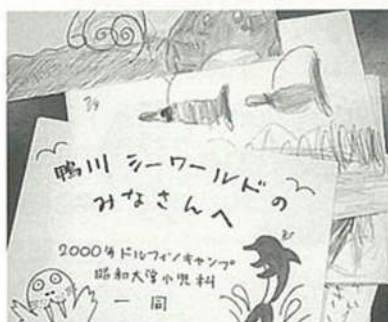 鴨川シーワールドの
みなさんへ
2000年ドルフィンキャンプ
昭和大学小児科
一同